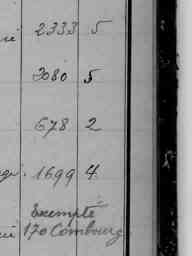 2333 5
3080 5
678 2
1699 4
Exempté
170 Combourg